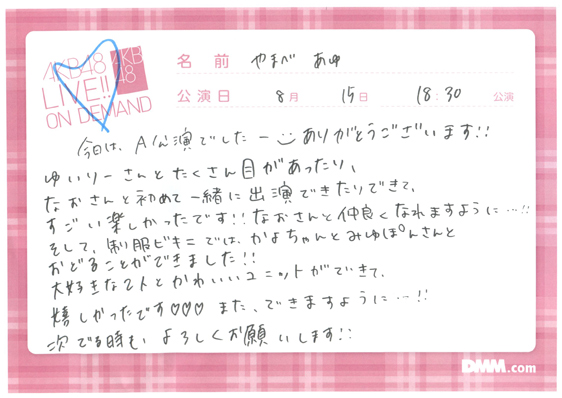 AKB48
LIVE!!
ON DEMAND
AKB
48
名前 やまべ あゆ
公演日 8月 15日 18:30 公演
今日は、A公演でしたー ありがとうございます!!
ゆいりーさんとたくさん目があったり、
なおさんと初めて一緒に出演できたりできて、
すごい楽しかったです!!なおさんと仲良くなれますように…!!
そして、制服ビキニでは、かよちゃんとみゆぽんさんと
おどることができました!!
大好きな2人とかわいいユニットができて、
嬉しかったです♡♡♡ また、できますように…!!
次でる時も よろしくお願いします!!
DMM.com